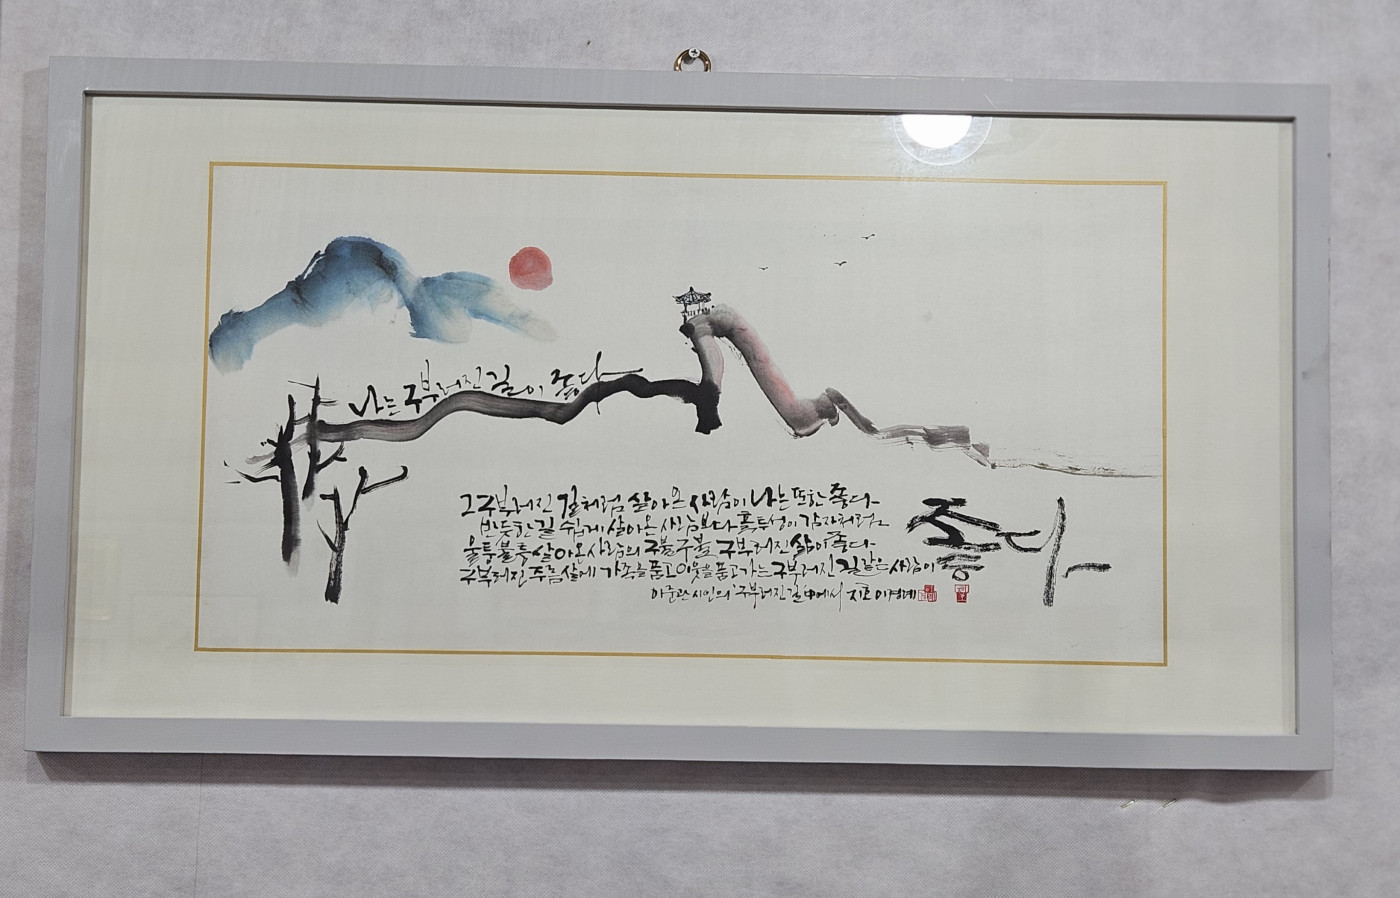 나는 구부러진 길이 좋다
그 구부러진 길처럼 살아온 사람이 나는 또한 좋다
반듯한 길 쉽게 살아온 사람보다 흙투성이 감자처럼
울퉁불퉁 살아온 사람의 구불구불 구부러진 삶이 좋다
구부러진 주름살에 가족을 품고 이웃을 품고 가는 구부러진 길 같은 사람이
좋다
시인의 '구부러진 길' 中에서 이경례